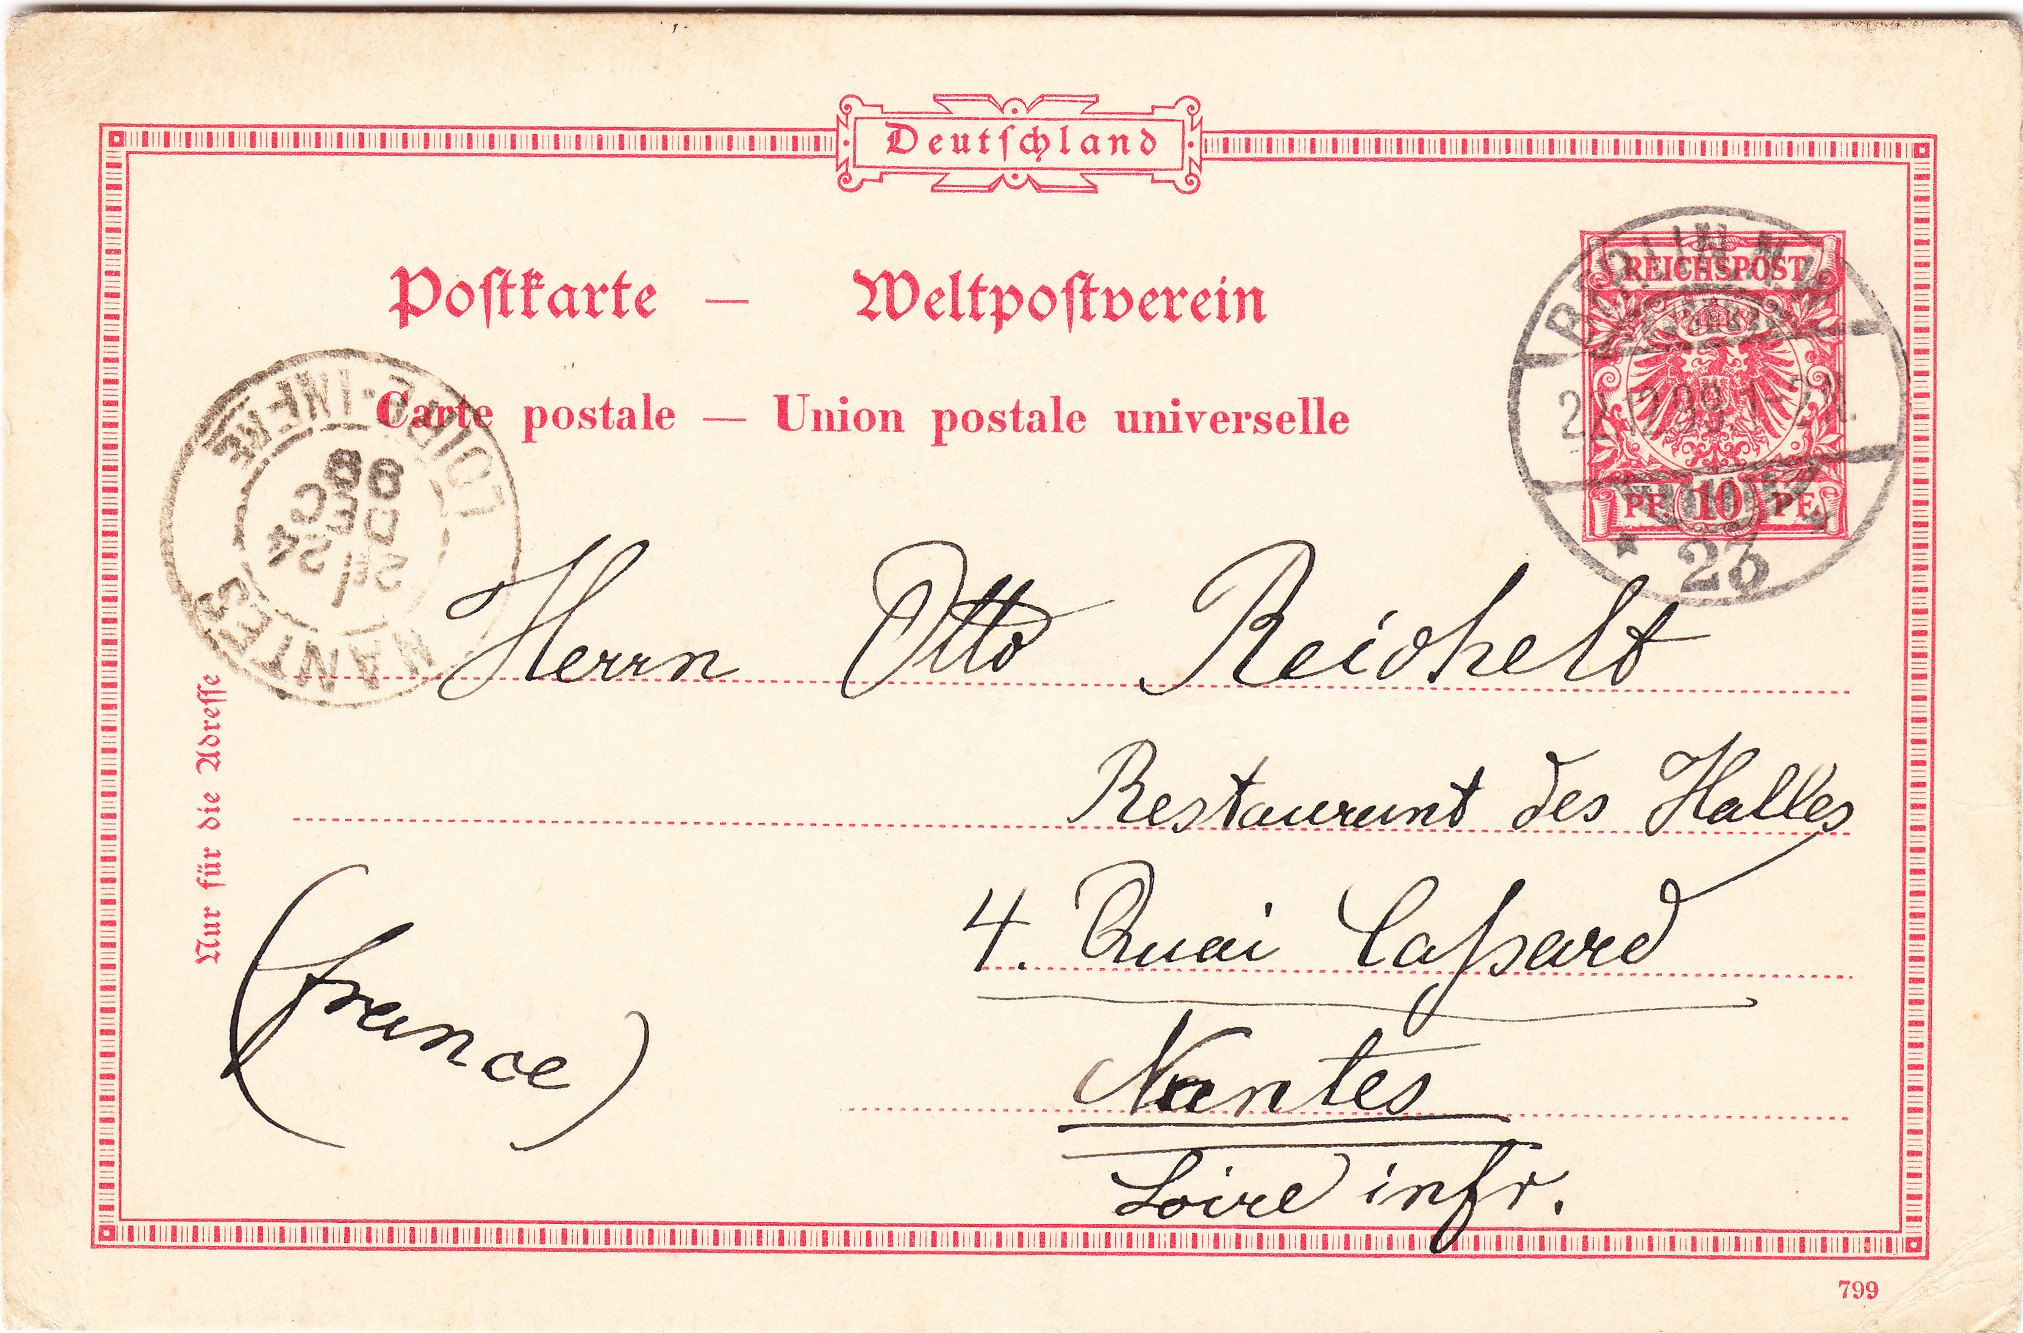 Deutschland
REICHSPOST
Postkarte — Weltpostverein
Carte postale — Union postale universelle
PF. 10 PF.
BERLIN N.W.
99.1-2N.
* 23
NANTES
LOIRE-INFRE
24
DEC
Herrn Otto Reichelt
Restaurant des Halles
4. Quai Caſsard
Nantes
Loire infr.
(france)
Nur für die Adresse
799